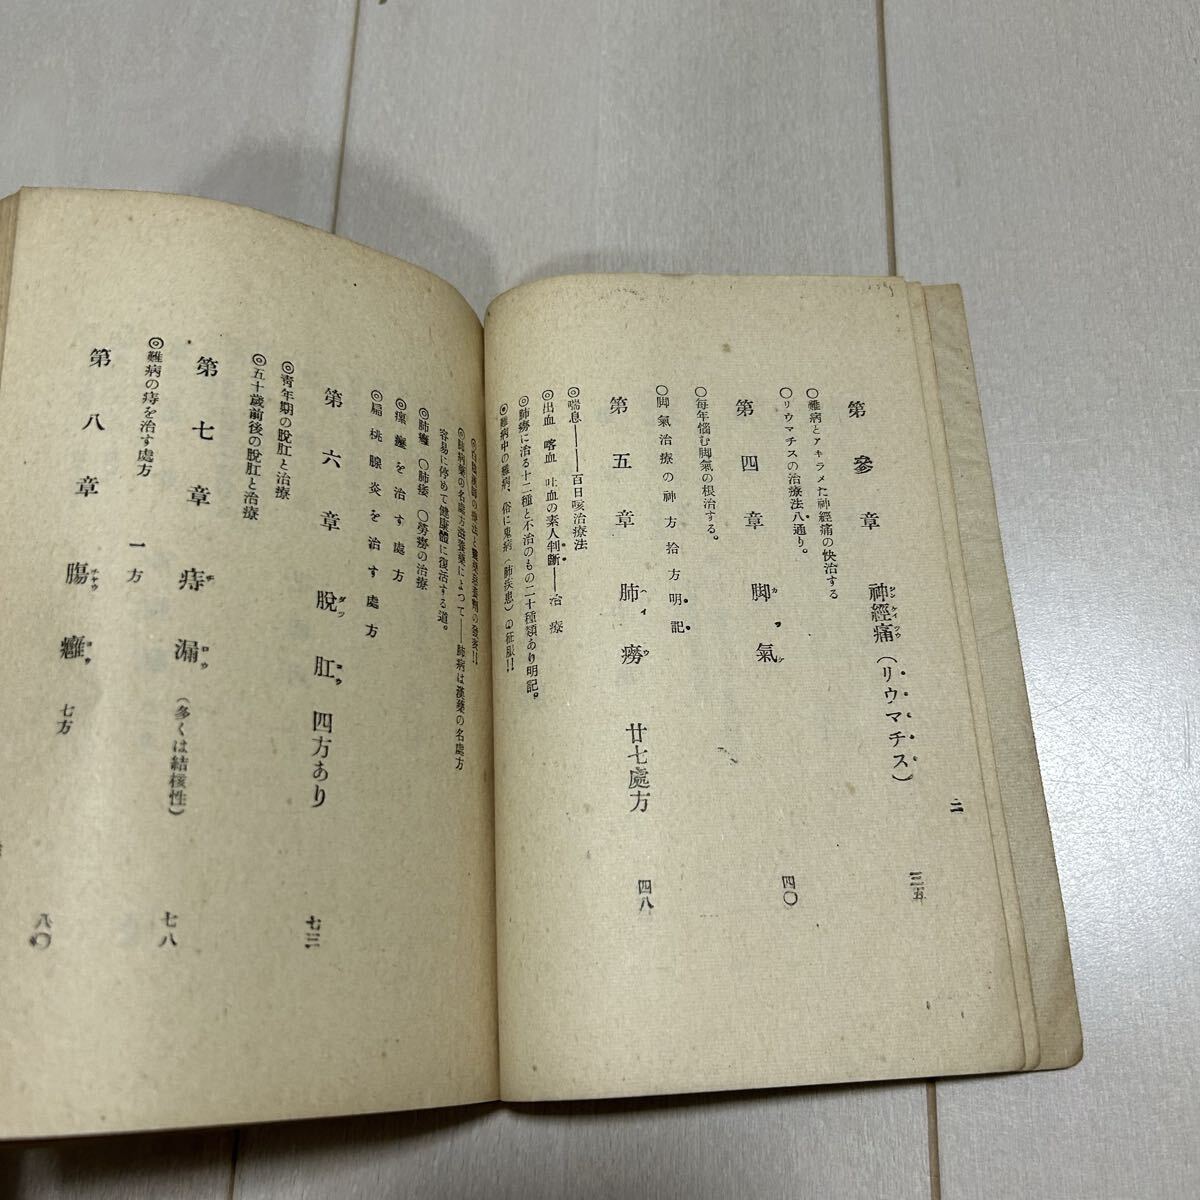 二
第參章 神經痛(リウマチス) 三五
〇難病とアキラメた神經痛の快治する
〇リウマチスの治療法八通り。
第四章 脚氣 四〇
〇每年惱む脚氣の根治する。
〇脚氣治療の神方拾方明記。
第五章 肺癆 廿七處方 四八
◎喘息――百日咳治療法
◎出血 喀血 吐血の素人判斷――治療
◎肺癆に治る十二種と不治のもの二十種類あり明記。
◎難病中の難病、俗に鬼病(肺疾患)の征服!!
◎肺病藥の名處方滋養藥によつて――肺病は漢藥の名處方
容易に停めて健康體に復活する道。
◎肺癰 〇肺痿 〇勞癆の治療
◎瘰癧を治す處方
◎扁桃腺炎を治す處方
第六章 脫肛 四方あり 七三
◎靑年期の脫肛と治療
◎五十歲前後の脫肛と治療
第七章 痔漏(多くは結核性) 七八
◎難病の痔を治す處方 一方
第八章 腸癰 七方 八〇